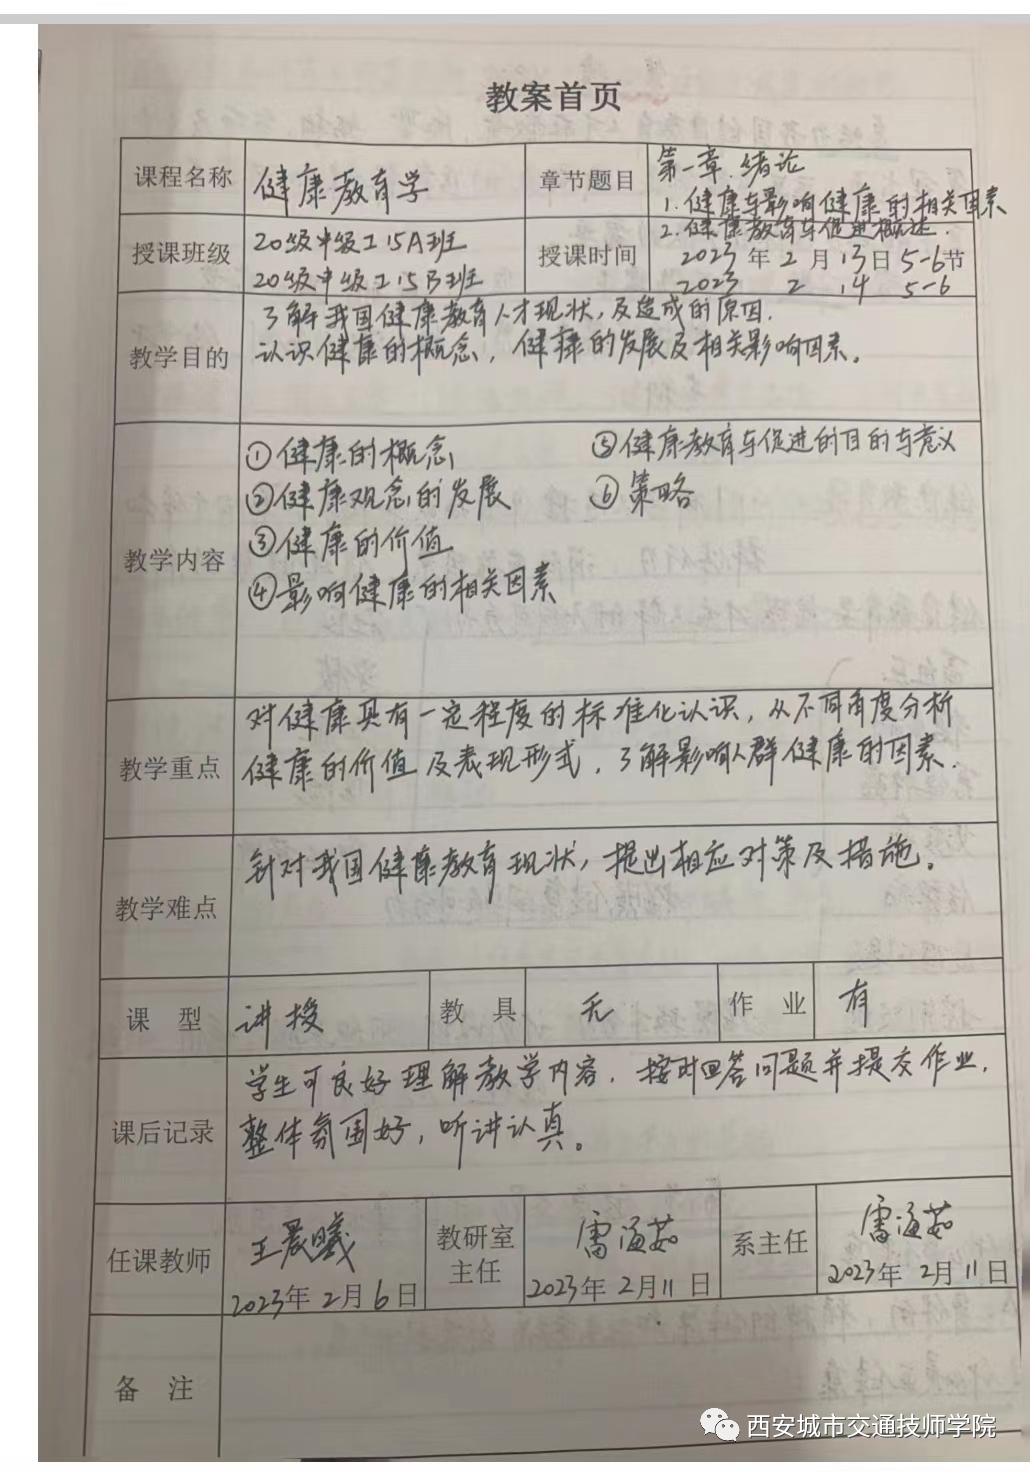 教案首页
课程名称 健康教育学 章节题目 第一章.绪论
1.健康与影响健康的相关因素
2.健康教育与促进概述.
授课班级 20级中级工15A班 授课时间 2023年2月13日5-6节
20级中级工15B班 2023 2 14 5-6
教学目的 了解我国健康教育人才现状,及造成的原因.
认识健康的概念,健康的发展及相关影响因素。
教学内容 ①健康的概念 ⑤健康教育与促进的目的与意义
②健康观念的发展 ⑥策略
③健康的价值
④影响健康的相关因素
教学重点 对健康具有一定程度的标准化认识,从不同角度分析
健康的价值及表现形式,了解影响人群健康的因素.
教学难点 针对我国健康教育现状,提出相应对策及措施。
课 型 讲授 教 具 无 作 业 有
课后记录 学生可良好理解教学内容.按时回答问题并提交作业.
整体氛围好,听讲认真。
任课教师 王晨曦 教研室主任 雷海茹 系主任 雷海茹
2023年2月6日 2023年2月11日 2023年2月11日
备 注
西安城市交通技师学院